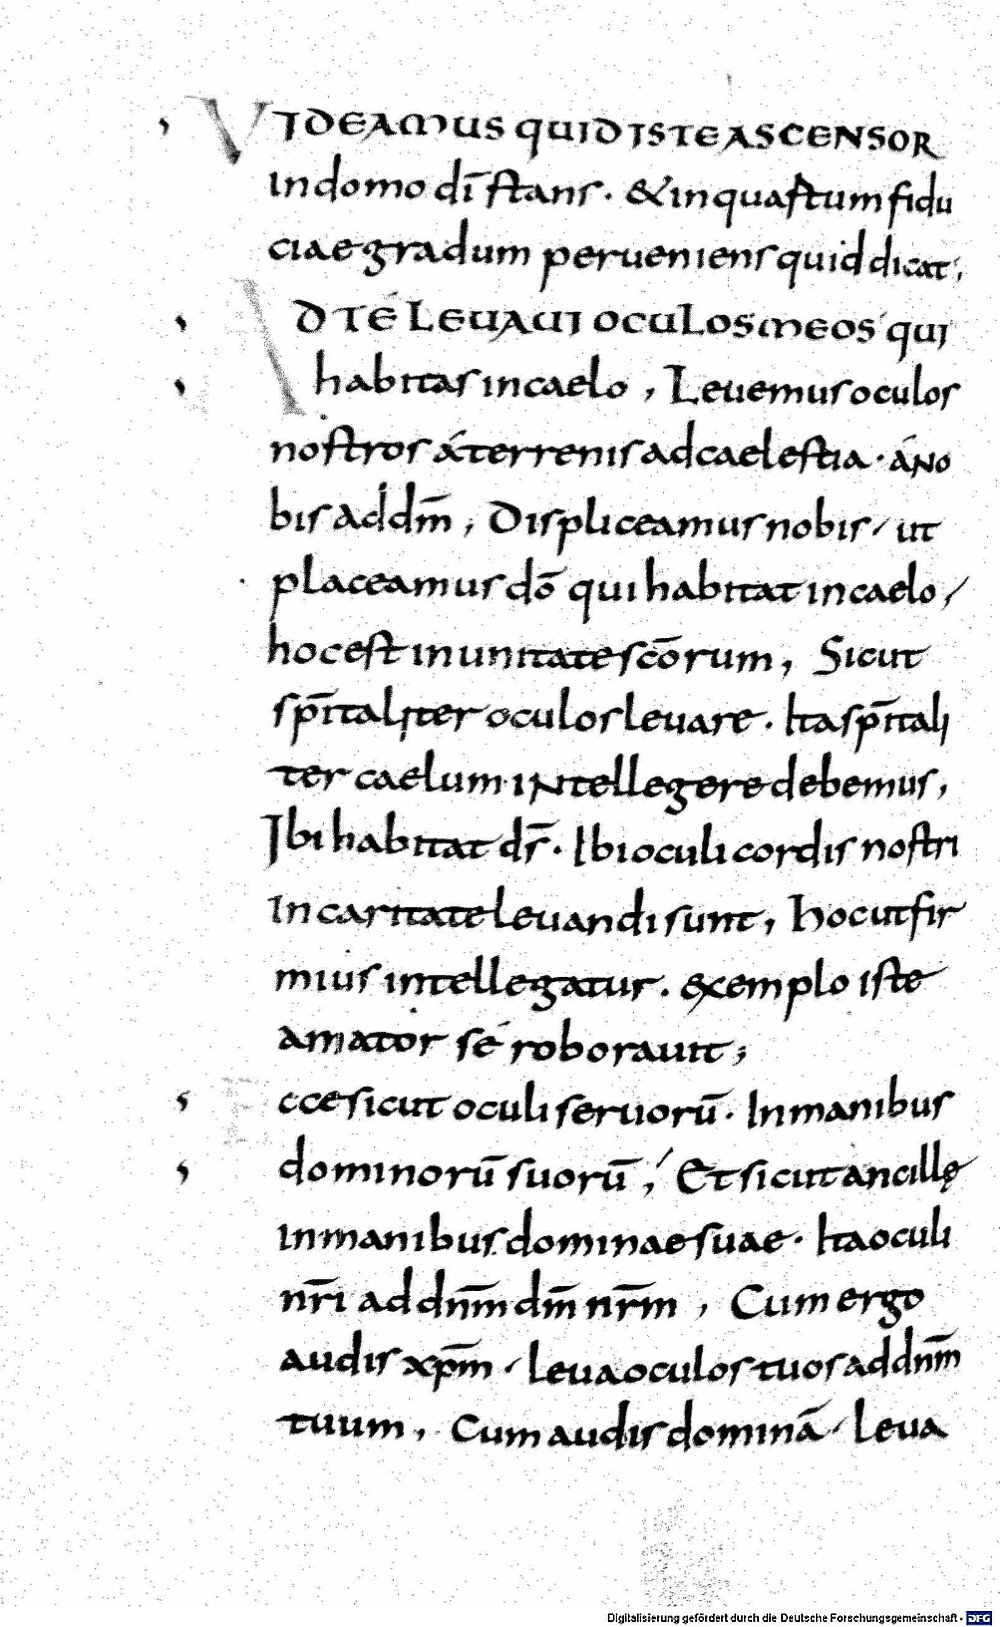 VIDEAMUS QUID ISTE ASCENSOR
In domo dī stans · & in qua statum fidu
ciae gradum perueniens quid dicat;
AD TÉ LEUAUI OCULOS MEOS QUI
habitas in caelo, Leuemus oculos
nostros á terrenis ad caelestia · á no
bis ad dm̄, Displiceamus nobis / ut
placeamus dō qui habitat in caelo /
hoc est in unitate scōrum, Sicut
sp̄italiter oculos leuare · Ita sp̄itali
ter caelum intellegere debemus,
Ibi habitat ds̄ · Ibi oculi cordis nostri
In caritate leuandi sunt, hoc ut fir
mius intellegatur · exemplo iste
amator sé roborauit;
Ecce sicut oculi seruorū · In manibus
dominorū suorū, Et sicut ancillę
In manibus dominae suae · Ita oculi
nr̄i ad dnm̄ dm̄ nr̄m, Cum ergo
audis xpm̄ · leua oculos tuos ad dnm̄
tuum, Cum audis dominā · leua
Digitalisierung gefördert durch die Deutsche Forschungsgemeinschaft - DFG